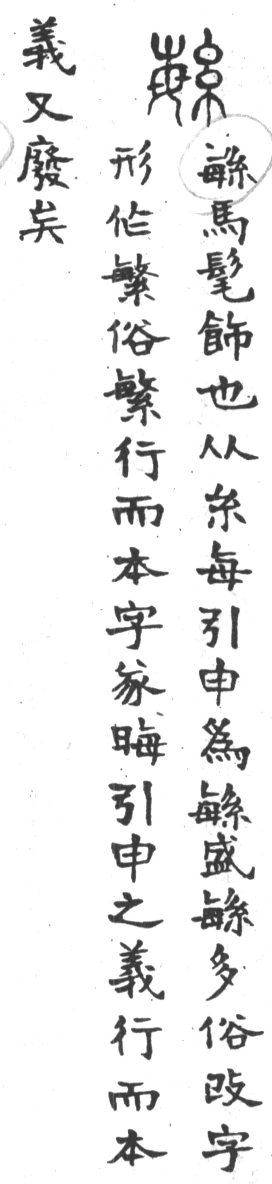 緐馬髦飾也从糸每引申爲緐盛緐多俗改字
形作繁俗繁行而本字遂晦引申之義行而本
義又廢矣